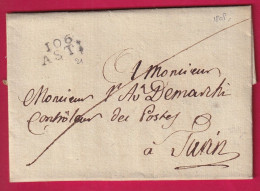 1808
106
ASTI
A Monsieur
Monsieur Demarchi
Contrôleur des Postes
à Turin